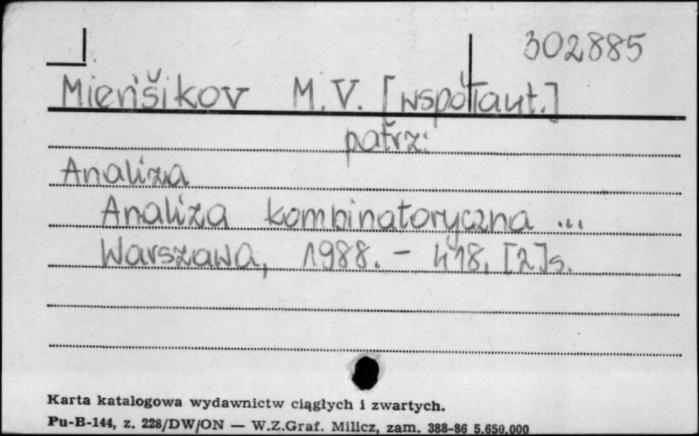 302885
Mien'šikov M.V. [współaut.]
patrz:
Analiza
Analiza kombinatoryczna ...
Warszawa, 1988. - 418, [2]s.
Karta katalogowa wydawnictw ciągłych i zwartych.
Pu-B-144, z. 228/DW/ON — W.Z.Graf. Milicz, zam. 388-86 5.650.000